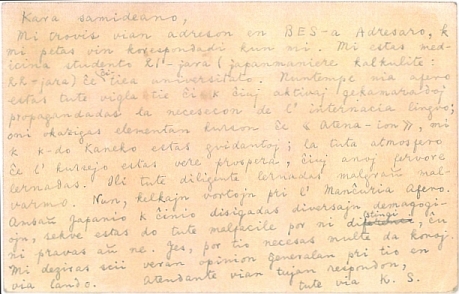 Kara samideano,
Mi trovis vian adreson en BES-a Adresaro, k
mi petas vin korespondadi kun mi. Mi estas med-
icina studento -jara (japanmaniere kalkulite:
-jara) ĉe ĉi tiea universitato. Nuntempe nia afero
estas tute vigla ĉi tie k ĉiuj aktivaj gekamaradoj
propagandadas la neceson de l' internacia lingvo;
oni okazigas elementan kurson ĉe « Atena-ion », mi
k k-do Kaneko estas gvidantoj; la tuta atmosfero
ĉe l' kursejo estas vere prospera, ĉiuj anoj fervore
lernadas. Ili tute diligente lernadas malgraŭ mal-
varmo. Nun, kelkajn vortojn pri l' Manĉuria Afero.
Ambaŭ Japanio k Ĉinio disigadas diversajn demagogi-
ojn, sekve estas do tute malfacile por ni distingi, ĉu
ni pravas aŭ ne. Jes, por tio necesas multe da konoj.
Mi deziras scii veran opinion generalan pri tio en
via lando. Atendante vian tujan respondon,
tute via K. S.